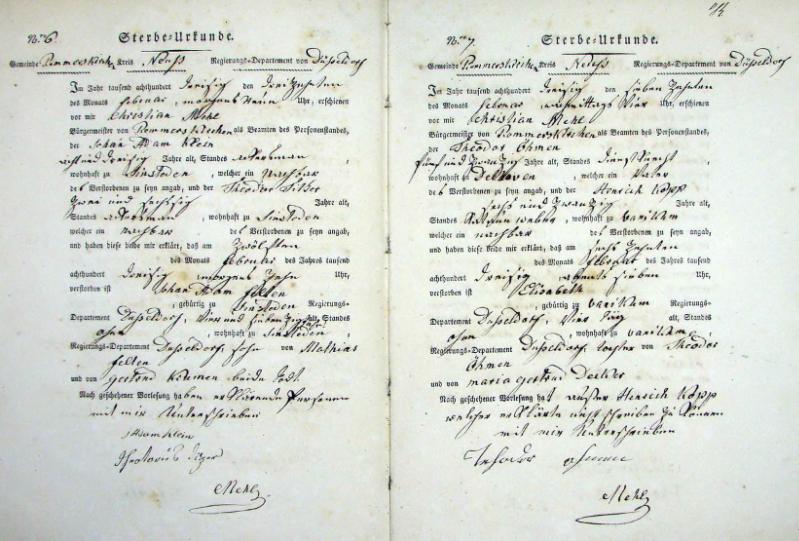 No 6. Sterbe=Urkunde.
Gemeinde Rommerskirchen Kreis Neuss Regierungs-Departement von Düsseldorf
Im Jahr tausend achthundert dreisig den dreizehnten
des Monats februar, morgens neun Uhr, erschienen
vor mir Christian Mehl
Bürgermeister von Rommerskirchen als Beamten des Personenstandes,
der Johan Adam Klein
acht und dreisig Jahre alt, Standes ackersman
wohnhaft zu Sinsteden, welcher ein nachbar
des Verstorbenen zu seyn angab, und der Theodor
zwei und sechszig Jahre alt,
Standes ackersman, wohnhaft zu Sinsteden
welcher ein nachbar des Verstorbenen zu seyn angab,
und haben diese beide mir erklärt, daß am zwölften
des Monats februar des Jahres tausend
achthundert dreisig morgens zehn Uhr,
verstorben ist Johan Adam felten
, gebürtig zu Sinsteden Regierungs-
Departement Düsseldorf, vier und siebenzig Jahre alt, Standes
ohne, wohnhaft zu Sinsteden,
Regierungs-Departement Düsseldorf, sohn von Mathias
felten
und von gertrud beide todt.
Nach geschehener Vorlesung haben erklärende Personen
mit mir Unterschrieben
Adam Klein
Mehl
No 7. Sterbe=Urkunde.
Gemeinde Rommerskirchen Kreis Neuss Regierungs-Departement von Düsseldorf
Im Jahr tausend achthundert dreisig den sieben zehnten
des Monats februar nachmittags vier Uhr, erschienen
vor mir Christian Mehl
Bürgermeister von Rommerskirchen als Beamten des Personenstandes,
der Theodor Öhmen
fünf und zwanzig Jahre alt, Standes dienstknecht
wohnhaft zu Delhoven, welcher ein Vater
des Verstorbenen zu seyn angab, und der Henrich Köpp
sechs und zwanzig Jahre alt,
Standes, wohnhaft zu
welcher ein nachbar des Verstorbenen zu seyn angab,
und haben diese beide mir erklärt, daß am sechs zehnten
des Monats februar des Jahres tausend
achthundert dreisig abents sieben Uhr,
verstorben ist Elisabeth
, gebürtig zu Regierungs-
Departement Düsseldorf, vier Tag alt, Standes
ohne, wohnhaft zu,
Regierungs-Departement Düsseldorf, tochter von Theodor
Öhmen
und von maria gertrud Decker
Nach geschehener Vorlesung hat ausser Henrich Köpp
welcher erklärte nicht schreiben zu können
mit mir Unterschrieben
Theodor
Mehl